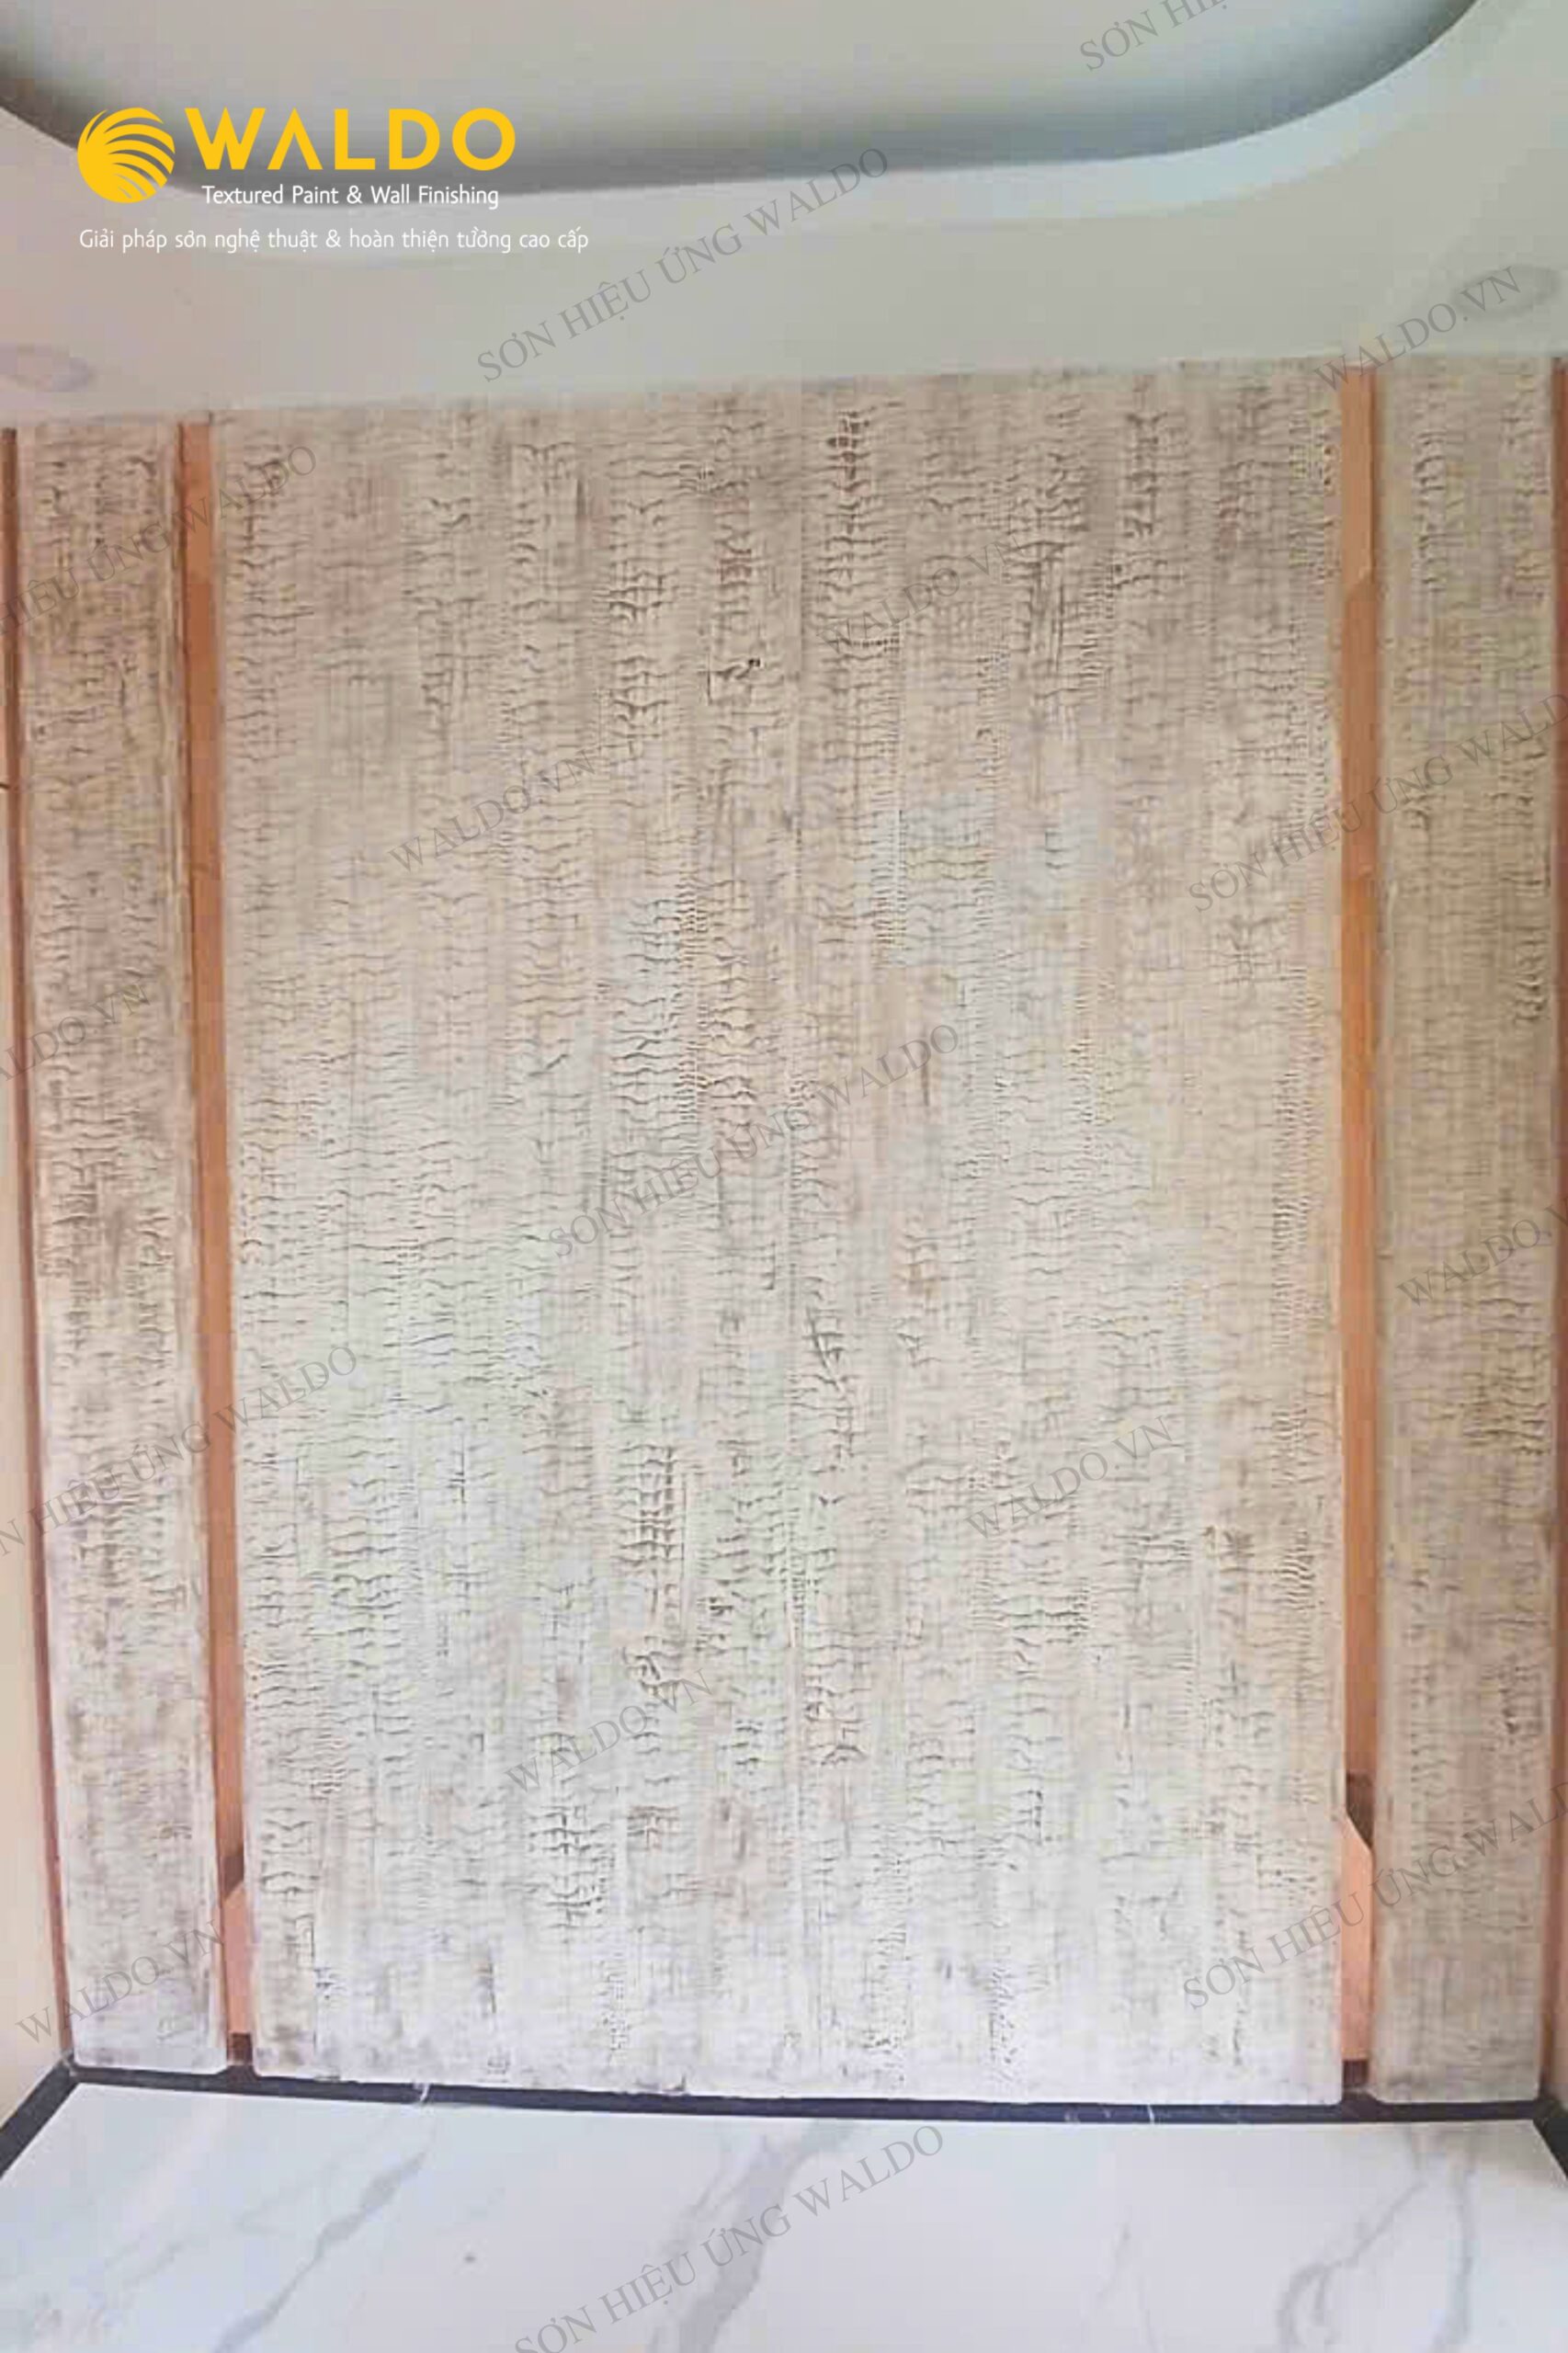 WALDO
Textured Paint & Wall Finishing
Giải pháp sơn nghệ thuật & hoàn thiện tường cao cấp
SƠN HIỆ
SƠN HIỆU ỨNG WALDO
WALDO.VN
HIỆU ỨNG WALDO
WALDO.VN
WALDO.VN
SƠN HIỆU ỨNG WALD
ALDO.VN
SƠN HIỆU ỨNG WALDO
WALDO.V
N HIỆU ỨNG WALDO
WALDO.VN
WALDO.VN
SƠN HIỆU ỨNG WAL
WALDO.VN
SƠN HIỆU ỨNG WALDO